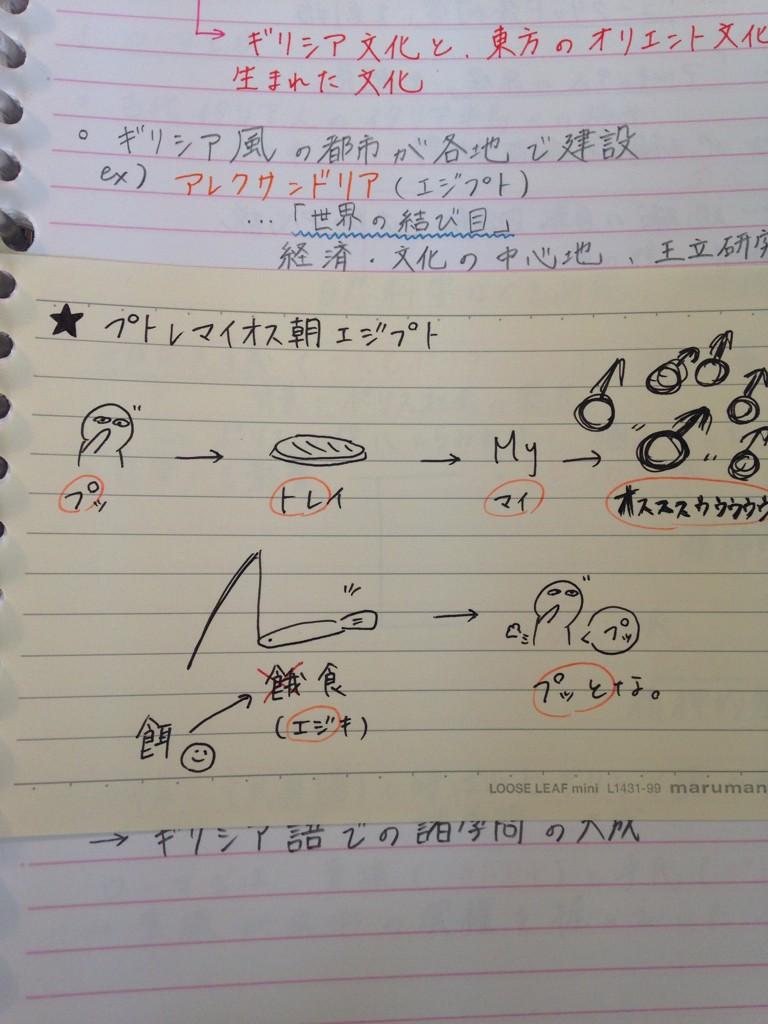 ギリシア文化と、東方のオリエント文化
生まれた文化
ギリシア風の都市が各地で建設
ex) アレクサンドリア(エジプト)
…「世界の結び目」
経済・文化の中心地、王立研究
★ プトレマイオス朝エジプト
→ → My →
プッ トレイ マイ オススススゥゥゥゥゥ
→ プッ
餓食 プッとな。
餌 (エジキ)
LOOSE LEAF mini L1431-99 maruman
→ ギリシア語での諸学問の大成